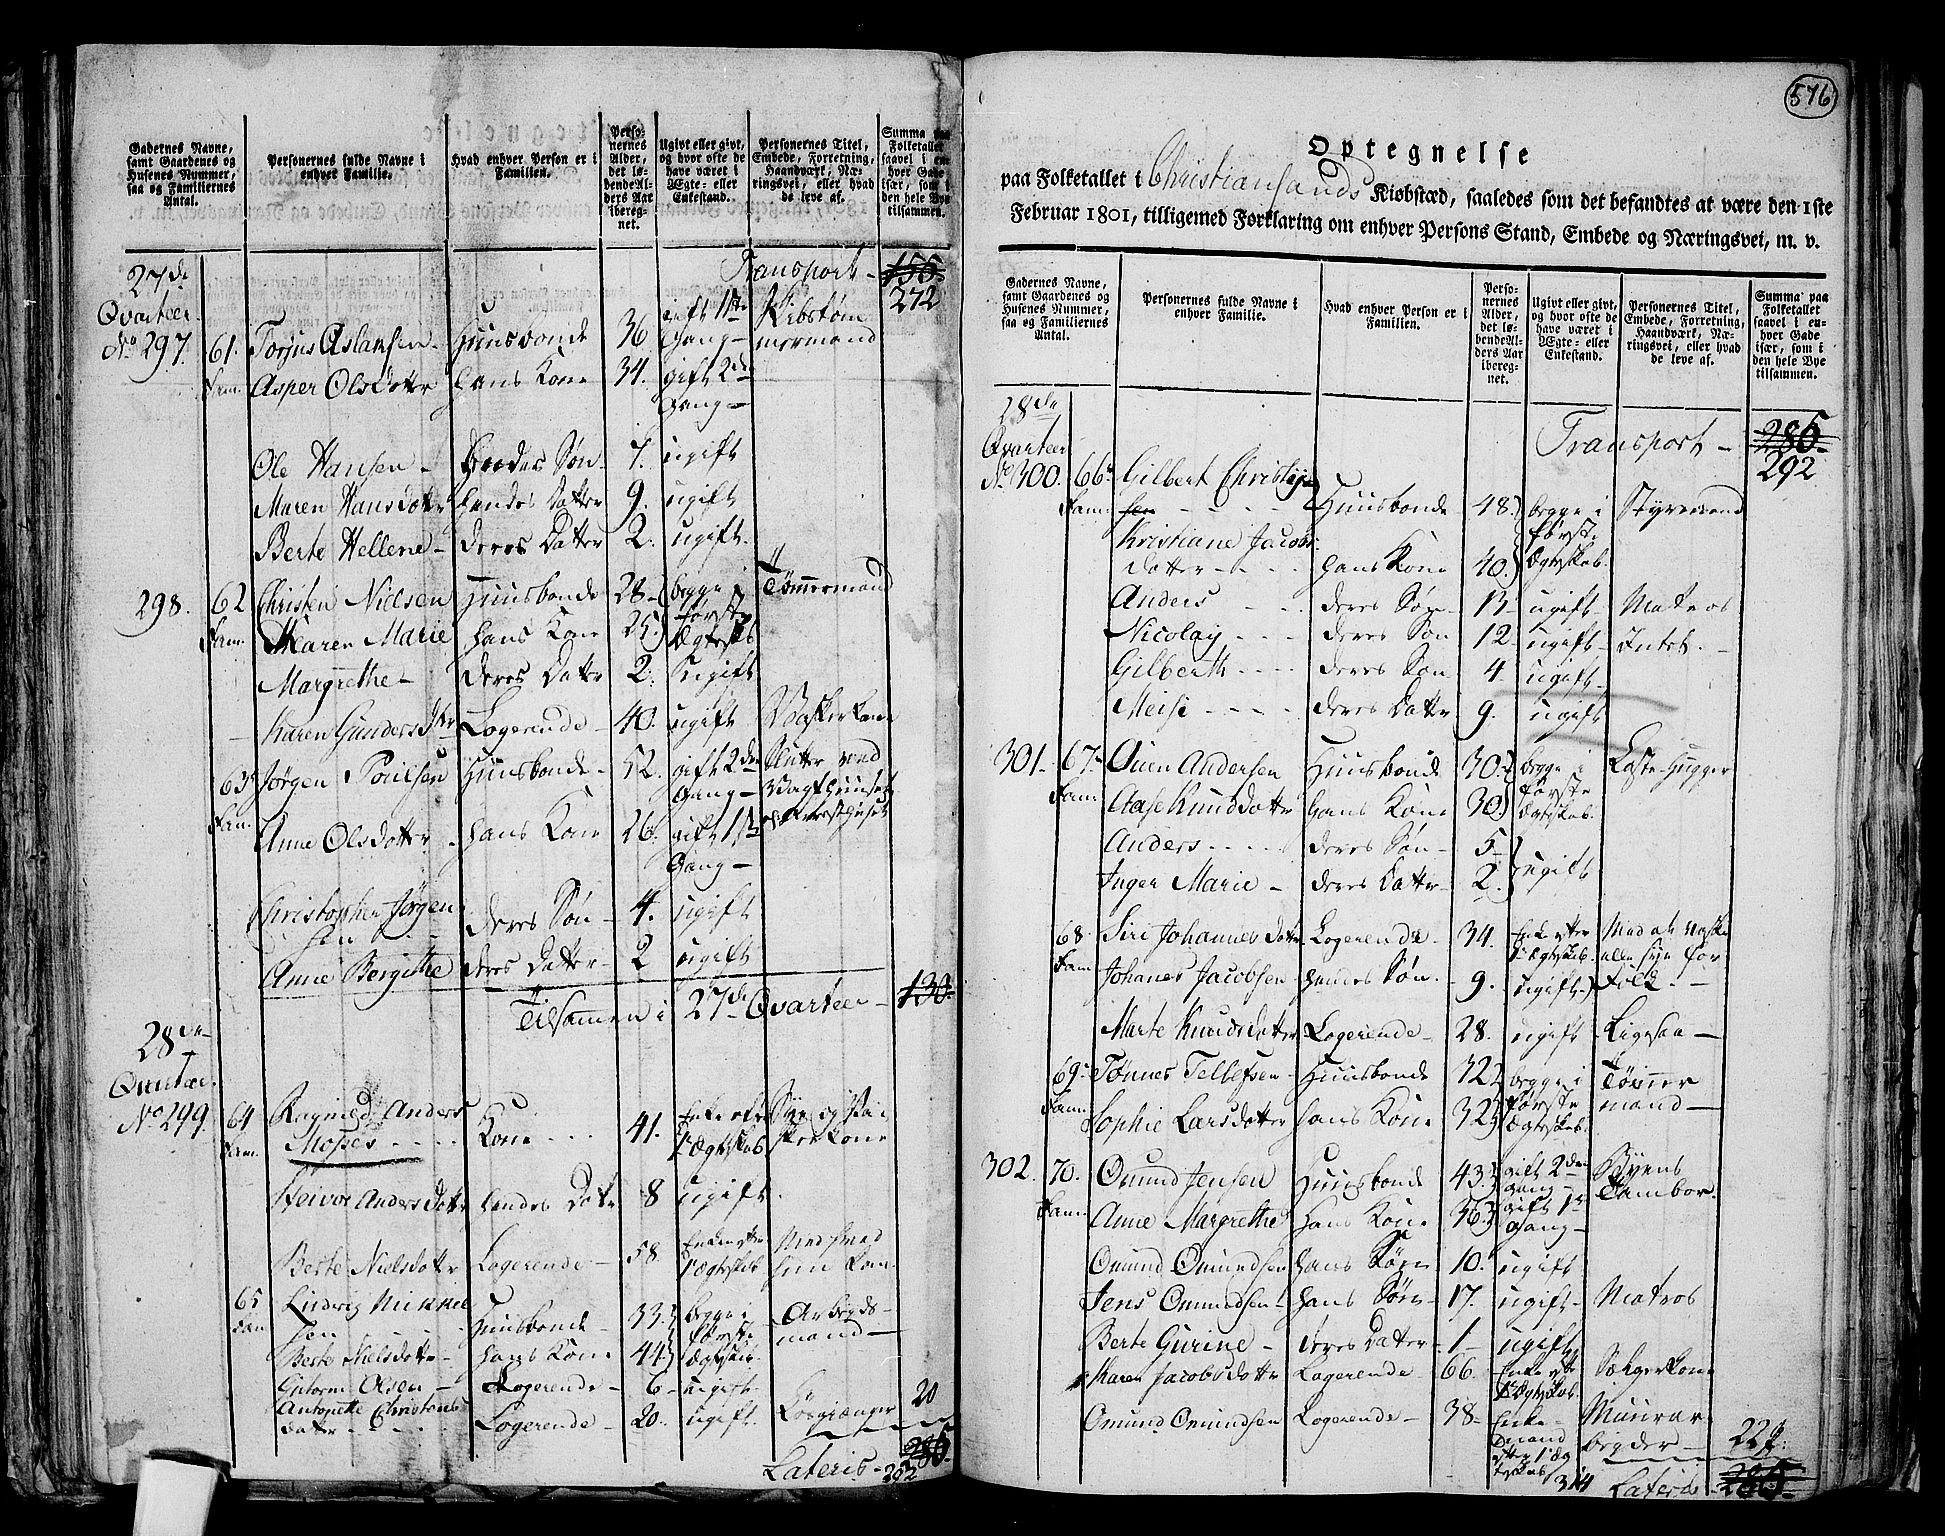 Gadernes Navne,
samt Gaardenes og
Husenes Nummer,
saa og Familiernes
Antal.
Personernes fulde Navne i
enhver Familie.
Hvad enhver Person er i
Familien.
Perso-
nernes
Alder,
det lø-
bende Al-
ders Aar
iberegnet.
Ugivt eller givt,
og hvor ofte de
have været i
Ægte- eller
Enkestand.
Personernes Titel,
Embede, Forretning,
Haandværk, Næ-
ringsvei, eller hvad
de leve af.
Summa paa
Folketallet
saavel i en-
hver Gade
især, som i
den hele Bye
tilsammen.
Transport - 155
272
27de
Qvarteer
No 297. 61. Fam. Torjus Aslaksen - Huusbonde 36 gift 1ste Gang - Skibstøm
mermand
Asper Olsdattr hans Kone 34. gift 2de
Gang -
Ole Hansen - Søn - 7. ugift
Maren Hansdattr hendes Datter 9. ugift
Berte Hellene - deres Datter 2. ugift.
298. 62 Fam. Christen Nielsen Huusbonde 28 - begge i Tømmermand
Maren Marie hans Kone 25 første Ægteskb
Margrethe - deres Datter 2. Ugift
Karen Gundersdtr Logerende - 40. ugift Vaskerkone
63 Fam. Jørgen Poulsen Huusbonde - 52. gift 2den Slutter ved
Gang - Vagthuuset
Anne Olsdatter - hans Kone 26. gift 1ste og Arresthuset
Gang -
Christopher Jørgen
sen - deres Søn - 4. ugift
Anne Bergithe deres Datter - 2 ugift
Tilsammen i 27de Qvarteer - 130
28de
Qvarteer
No 299. 64 Fam. Ragnild Anders
Mosses - - - - Kone - - - 41. Enke efter Sye og Va
1ste Ægteskab skerkone
Andersdattr hendes Dattr 8 ugift.
Berte Nielsdattr Logerende - 58. Enke efter
1ste Ægteskab
65 Fam Ludvig Mikkel
sen Huusbonde - 33 begge i Arbeyds-
første mand -
Berte Nielsdattr - hans Kone 44 Ægteskab.
Gutorm Olsen - Logerende - 6 - ugift -
Antonette Christens
datter - - - - Logerende - 20. ugift. Løsgiænger 20
Lateris - 286
292
576
Optegnelse
paa Folketallet i Christiansands Kiøbstæd, saaledes som det befandtes at være den 1ste
Februar 1801, tilligemed Forklaring om enhver Persons Stand, Embede og Næringsvei, m. v.
Gadernes Navne,
samt Gaardenes og
Husenes Nummer,
saa og Familiernes
Antal.
Personernes fulde Navne i
enhver Familie.
Hvad enhver Person er i
Familien.
Perso-
nernes
Alder,
det lø-
bende Al-
ders Aar
ibereg-
net.
Ugivt eller givt,
og hvor ofte de
have været i
Ægte- eller
Enkestand.
Personernes Titel,
Embede, Forretning,
Haandværk, Næ-
ringsvei, eller hvad
de leve af.
Summa paa
Folketallet
saavel i en-
hver Gade
især, som i
den hele Bye
tilsammen.
28de
Qvarteer Transport - 286
292
No 300. 66 Fam. Gilbert Christian
sen - - - - Huusbonde 48. begge i Styrmand
Kristiane Jacobs første
datter - - - - hans Kone 40. Ægteskab.
Anders - - - deres Søn - 13 - ugift - Matros
Nicolay - - - deres Søn 12 - ugift - Intet. -
Gilberth - - - deres Søn 4 - ugift -
Meisi - - - - deres Dattr 9. ugift
301 - 67 Fam. Ouen Andersen Huusbonde 30. begge i Laste-Hugger
første
Aase Knudsdattr Hans Kone 30 Ægteskab.
Anders - - - - deres Søn - 5
Inger Marie - deres Dattr - 2. ugift
68. Fam. Siri Johannesdattr Logerende - 34. Enke efter Med at vaske
1 Ægteskab. eller sye for
Johanes Jacobsen hendes Søn. 9. ugift - Folk. -
Marte Knudsdatter Logerende - 28. ugift Ligesaa -
69. Fam. Tønnes Tellefsen - Huusbonde 32 begge i Tømer
første mand -
Sophie Larsdatter hans Kone 32 Ægteskab.
302. 70. Fam. Omund Jensen Huusbonde 43 gift 2den Byens
gang - Tambor.
Anne Margrethe Hans Kone 36 gift 1ste
gang -
Omund Omundsen hans Søn 10. ugift
Jens Omundsen - hans Søn - 17. ugift - Matros
Berte Gurine - deres Datter - 1 - ugift
Karen Jacobsdattr Logerende 66 Enke efte Sælgerkone
1 Ægteskab.
Omund Omundsen Logerende - 38 - Enke- Muurar-
mand beyder - 22
efter 1 Æg
teskab 314 Lateris - 286